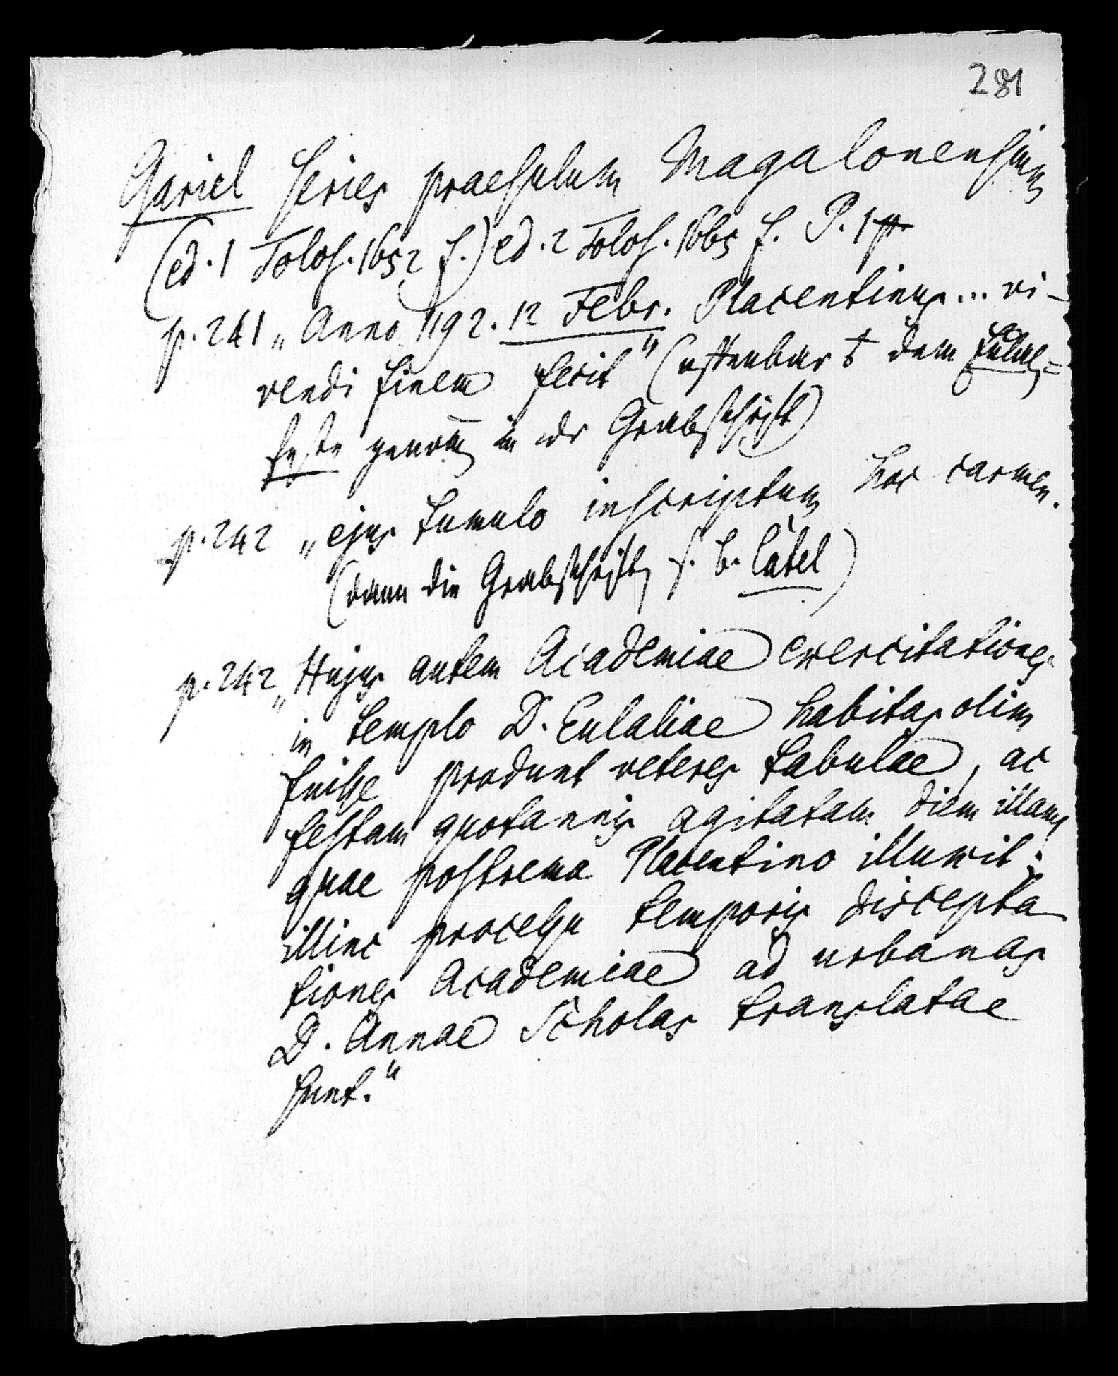 281
Gariel Series praesulum Magalonensium
(ed. 1 Tolos. 1652 f.) ed. 2 Tolos. 1665 f. P. 1
p. 241 „Anno 1192. 12 Febr. Placentinus... vi-
vendi finem fecit" (offenbar dem Eulal-
feste genom̄ in der Grabschrift)
p. 242 „ejus tumulo inscriptum hoc carmen.
(dann die Grabschrift s. b. Catel)
p. 242 „Hujus autem Academiae exercitationes
in templo D. Eulaliae habitas olim
fuisse produnt veteres tabulae, ac
festam quotannis agitatam diem illam
quae postrema Placentino illuxit:
illinc processu temporis discepta
tiones Academiae ad urbanas
D. Annae Scholas translatae
sunt."